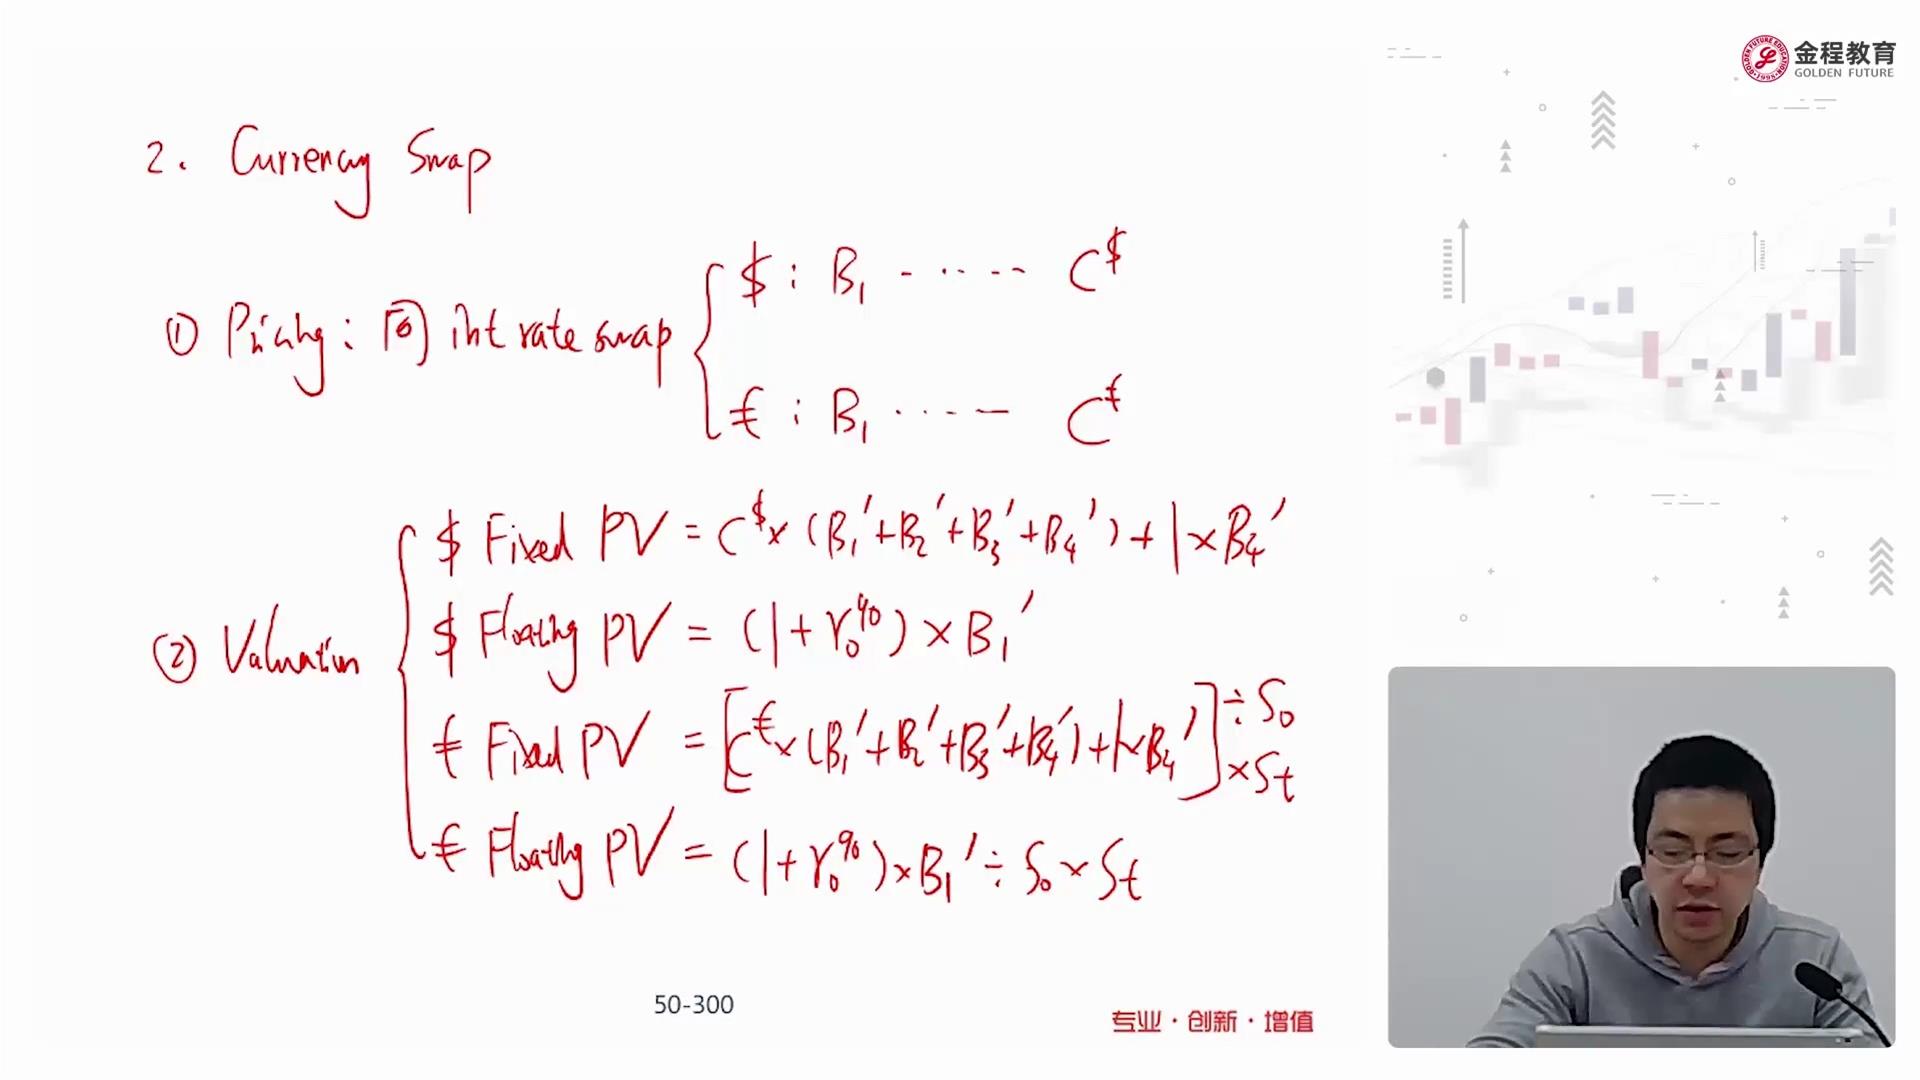 金程教育
GOLDEN FUTURE
2. Currency Swap
$ : B₁ - ‥ - - C^$
① Pricing : 同 int rate swap
€ : B₁ ‥ - — C^€
$ Fixed PV = C^$ × (B₁′ + B₂′ + B₃′ + B₄′) + 1 × B₄′
$ Floating PV = (1 + r₀^90) × B₁′
② Valuation
€ Fixed PV = [C^€ × (B₁′ + B₂′ + B₃′ + B₄′) + 1 × B₄′] ÷ S₀ × St
€ Floating PV = (1 + r₀^90) × B₁′ ÷ S₀ × St
50-300
专业·创新·增值